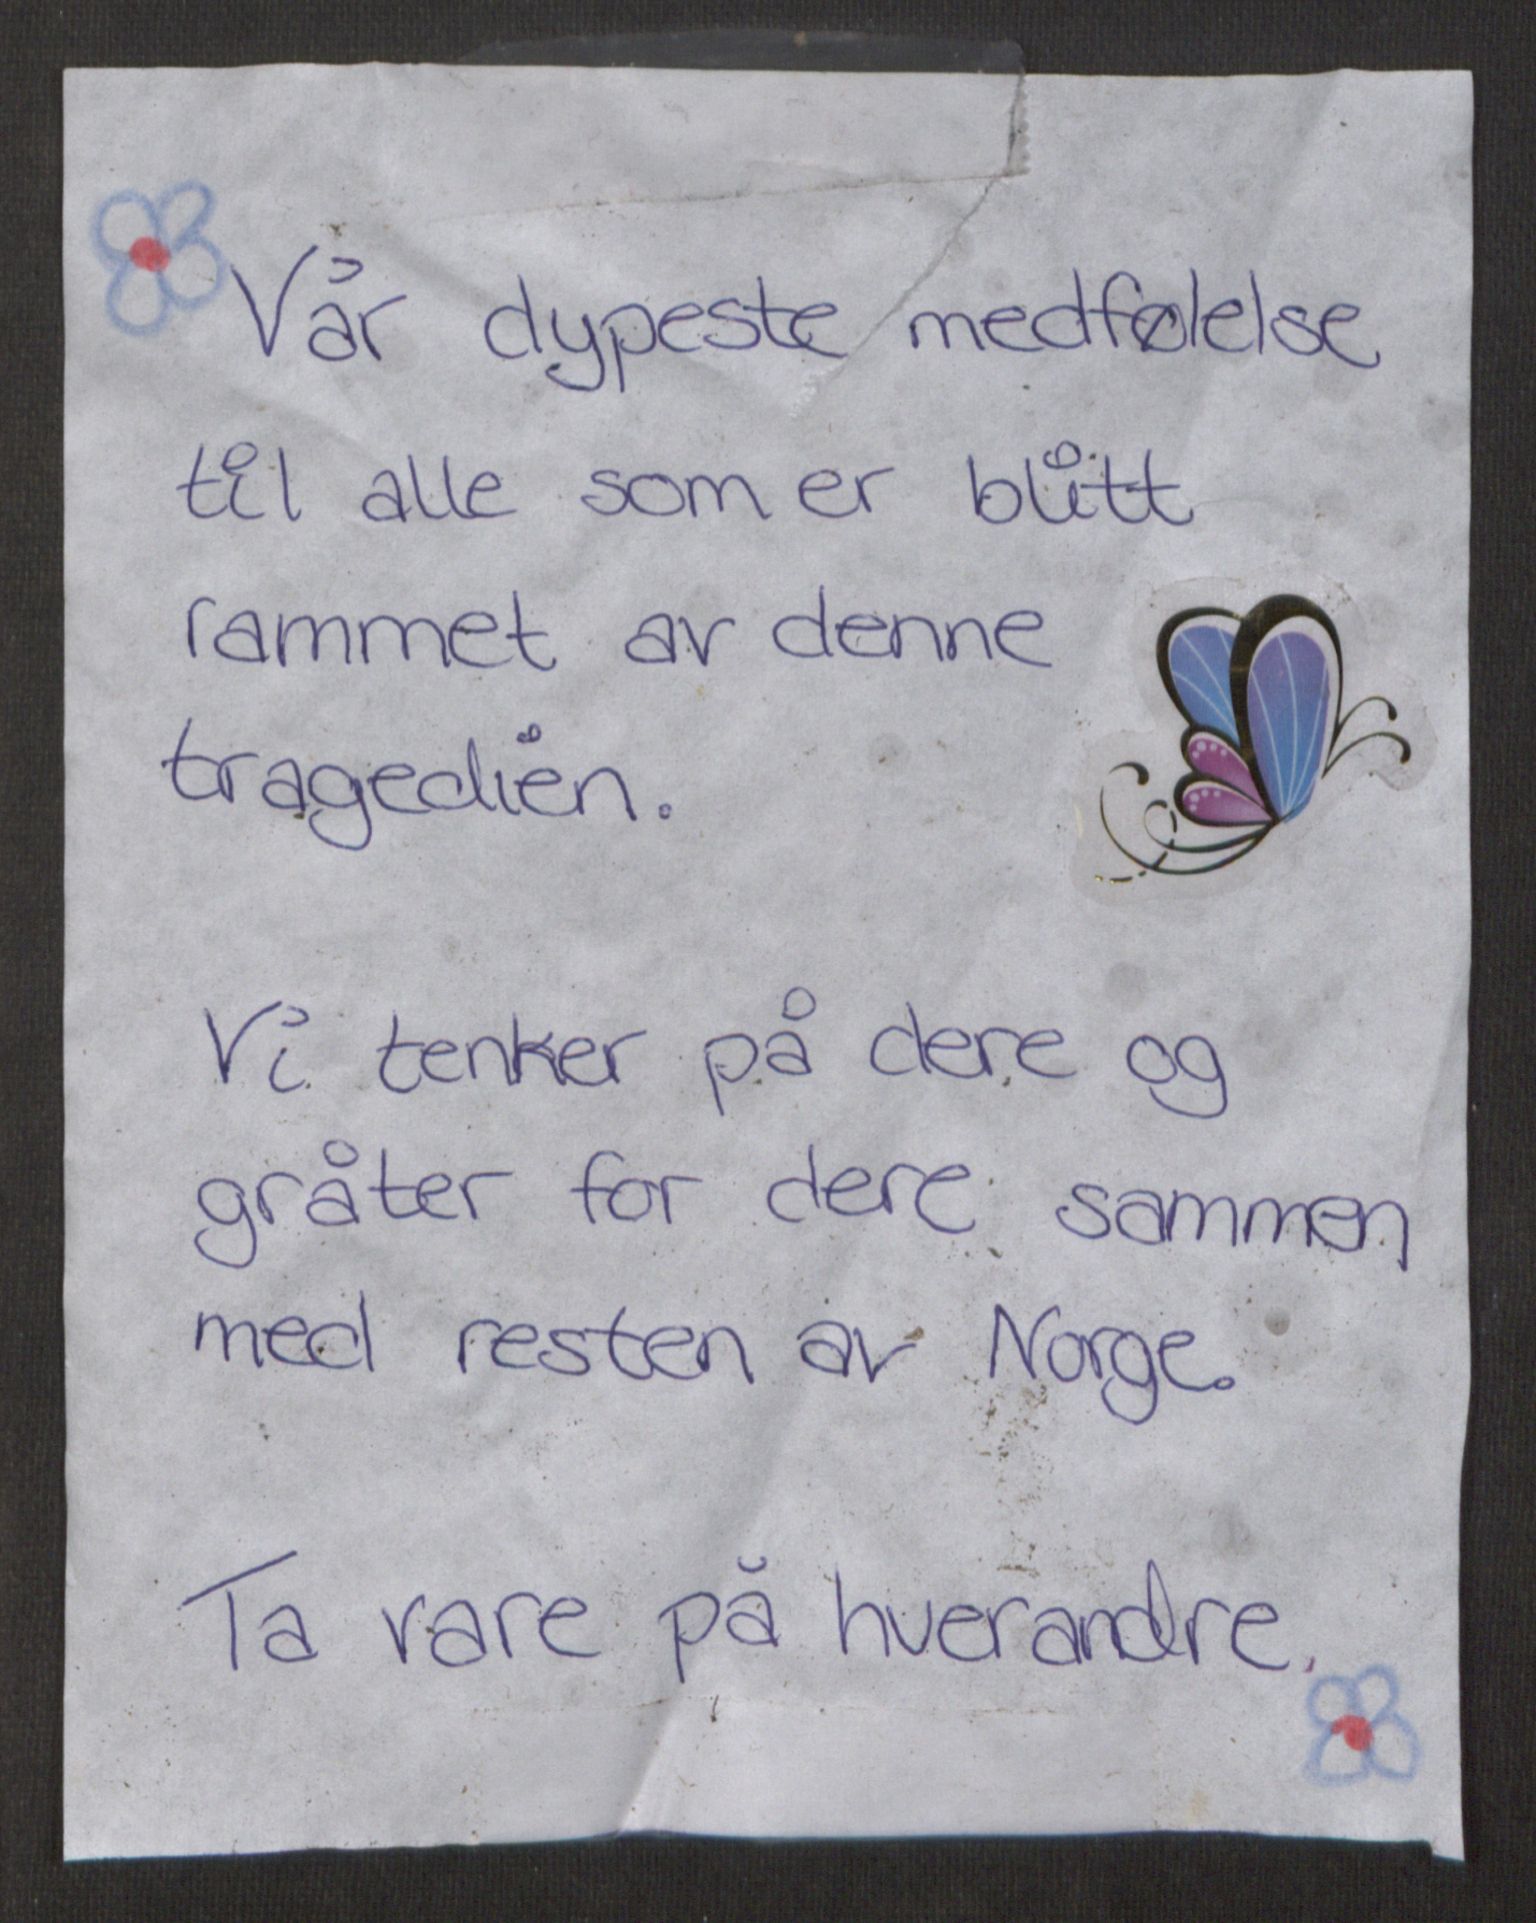 Vår dypeste medfølelse
til alle som er blitt
rammet av denne
tragedien.
Vi tenker på dere og
gråter for dere sammen
med resten av Norge.
Ta vare på hverandre.